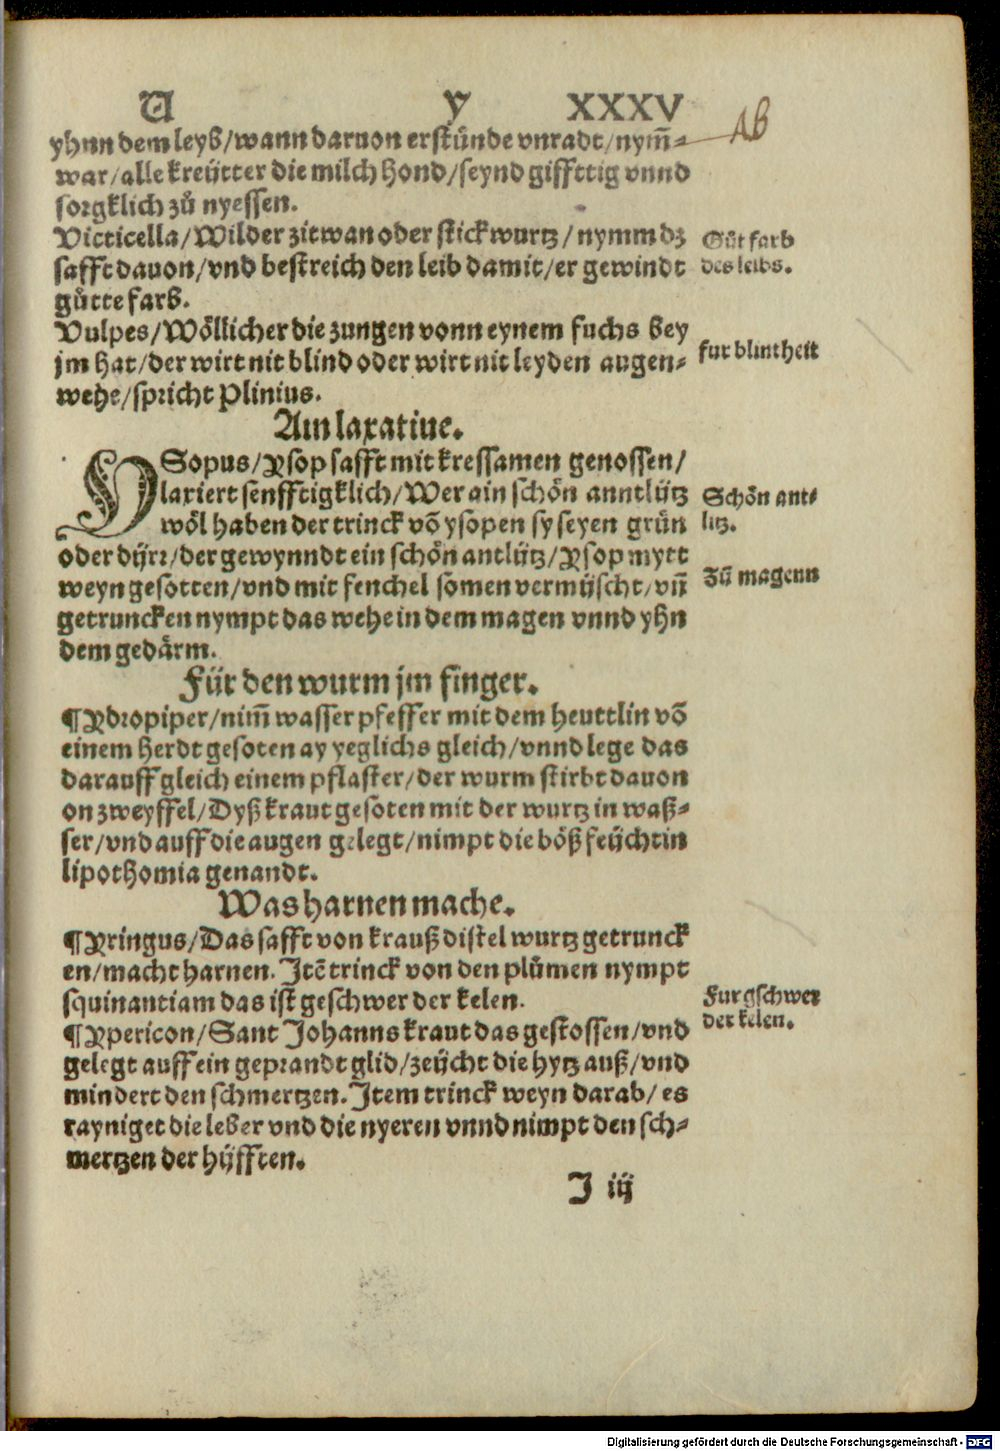 V y XXXV
AB
yhnn dem leyb/wann daruon erstünde vnradt/nym̃⸗
war/alle kreütter die milch hond/seynd gifftig vnnd
sorgklich zů nyessen.
Victicella/Wilder zitwan oder stickwurtz/nymm dz
safft dauon/vnd bestreich den leib damit/er gewindt
gůtte farb.
Gůt farb
des leibs.
Vulpes/Wöllicher die zungen vonn eynem fuchs bey
jm hat/der wirt nit blind oder wirt nit leyden augen⸗
wehe/spricht Plinius.
fur blintheit
Ain laxatiue.
YSopus/Ysop safft mit kressamen genossen/
laxiert senfftigklich/Wer ain schön anntlütz
wöl haben der trinck võ ysopen sy seyen grün
oder dÿrr/der gewynndt ein schön antlütz/Ysop mytt
weyn gesotten/vnd mit fenchel somen vermÿscht/vñ
getruncken nympt das wehe in dem magen vnnd yhn
dem gedärm.
Schön ant⸗
litz.
Zů magenn
Für den wurm jm finger.
¶Ydropiper/nim̃ wasser pfeffer mit dem heuttlin võ
einem herdt gesoten ay yeglichs gleich/vnnd lege das
darauff gleich einem pflaster/der wurm stirbt dauon
on zweyffel/Dyß kraut gesoten mit der wurtz in waß⸗
ser/vnd auff die augen gelegt/nimpt die böß feÿchtin
lipothomia genandt.
Was harnen mache.
¶Yringus/Das safft von krauß distel wurtz getrunck
en/macht harnen. Itẽ trinck von den plůmen nympt
squinantiam das ist geschwer der kelen.
Fur gschwer
der kelen.
¶Ypericon/Sant Johanns kraut das gestossen/vnd
gelegt auff ein geprandt glid/zeÿcht die hytz auß/vnd
mindert den schmertzen. Item trinck weyn darab/es
rayniget die leber vnd die nyeren vnnd nimpt den sch⸗
mertzen der hÿfften.
I iij
Digitalisierung gefördert durch die Deutsche Forschungsgemeinschaft - DFG